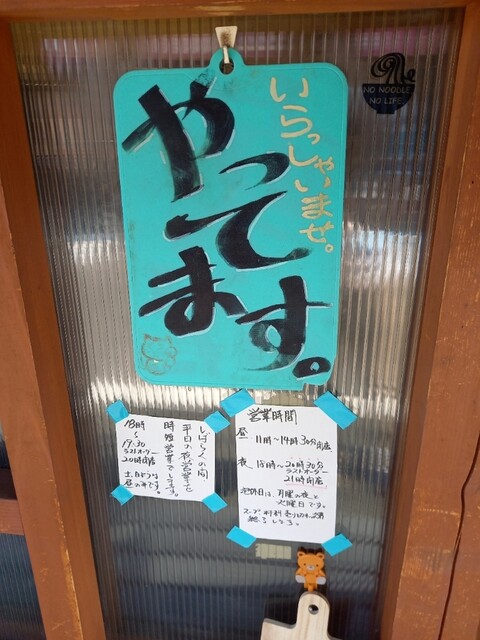 いらっしゃいませ。
やってます。
NO NOODLE,
NO LIFE.
営業時間
昼 11時~14時30分閉店
夜 18時~20時30分
ラストオーダー
21時閉店
定休日は、月曜の夜と
火曜日です。
しばらくの間
平日の夜営業を
時短営業でします。
18時
~
19:30
ラストオーダー
20時閉店
土日
昼のみです。